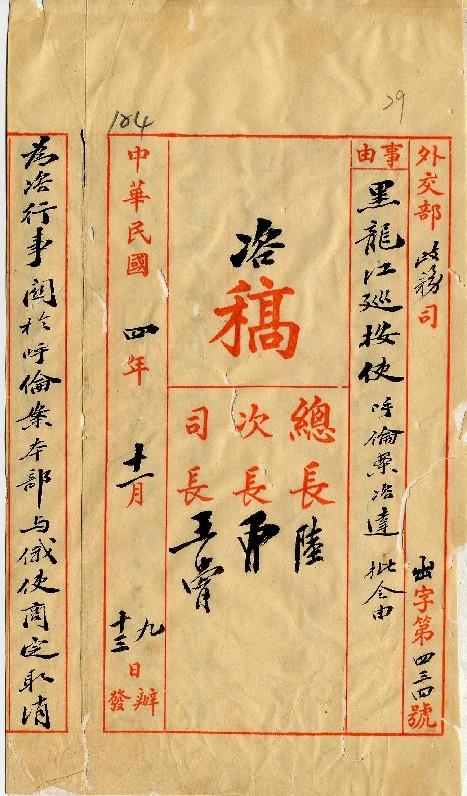 29
外交部 政務司 出字第四三四號
事由
黑龍江巡按使呼倫案咨達批令由
咨
稿
總長 陸
次長
司長 王
中華民國四年十一月九日辦
十三 發
為咨行事關於呼倫案本部与俄使商定取消